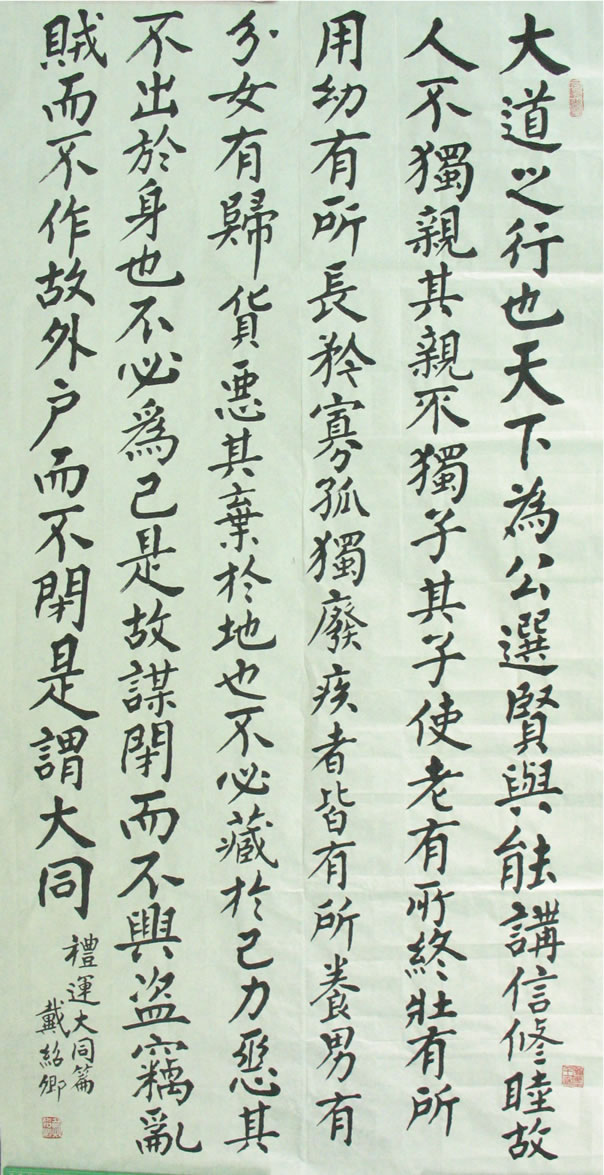 大道之行也天下為公選賢與能講信修睦故
人不獨親其親不獨子其子使老有所終壯有所
用幼有所長矜寡孤獨廢疾者皆有所養男有
分女有歸貨惡其棄於地也不必藏於己力惡其
不出於身也不必為己是故謀閉而不興盜竊亂
賊而不作故外户而不閉是謂大同
禮運大同篇
戴紹卿